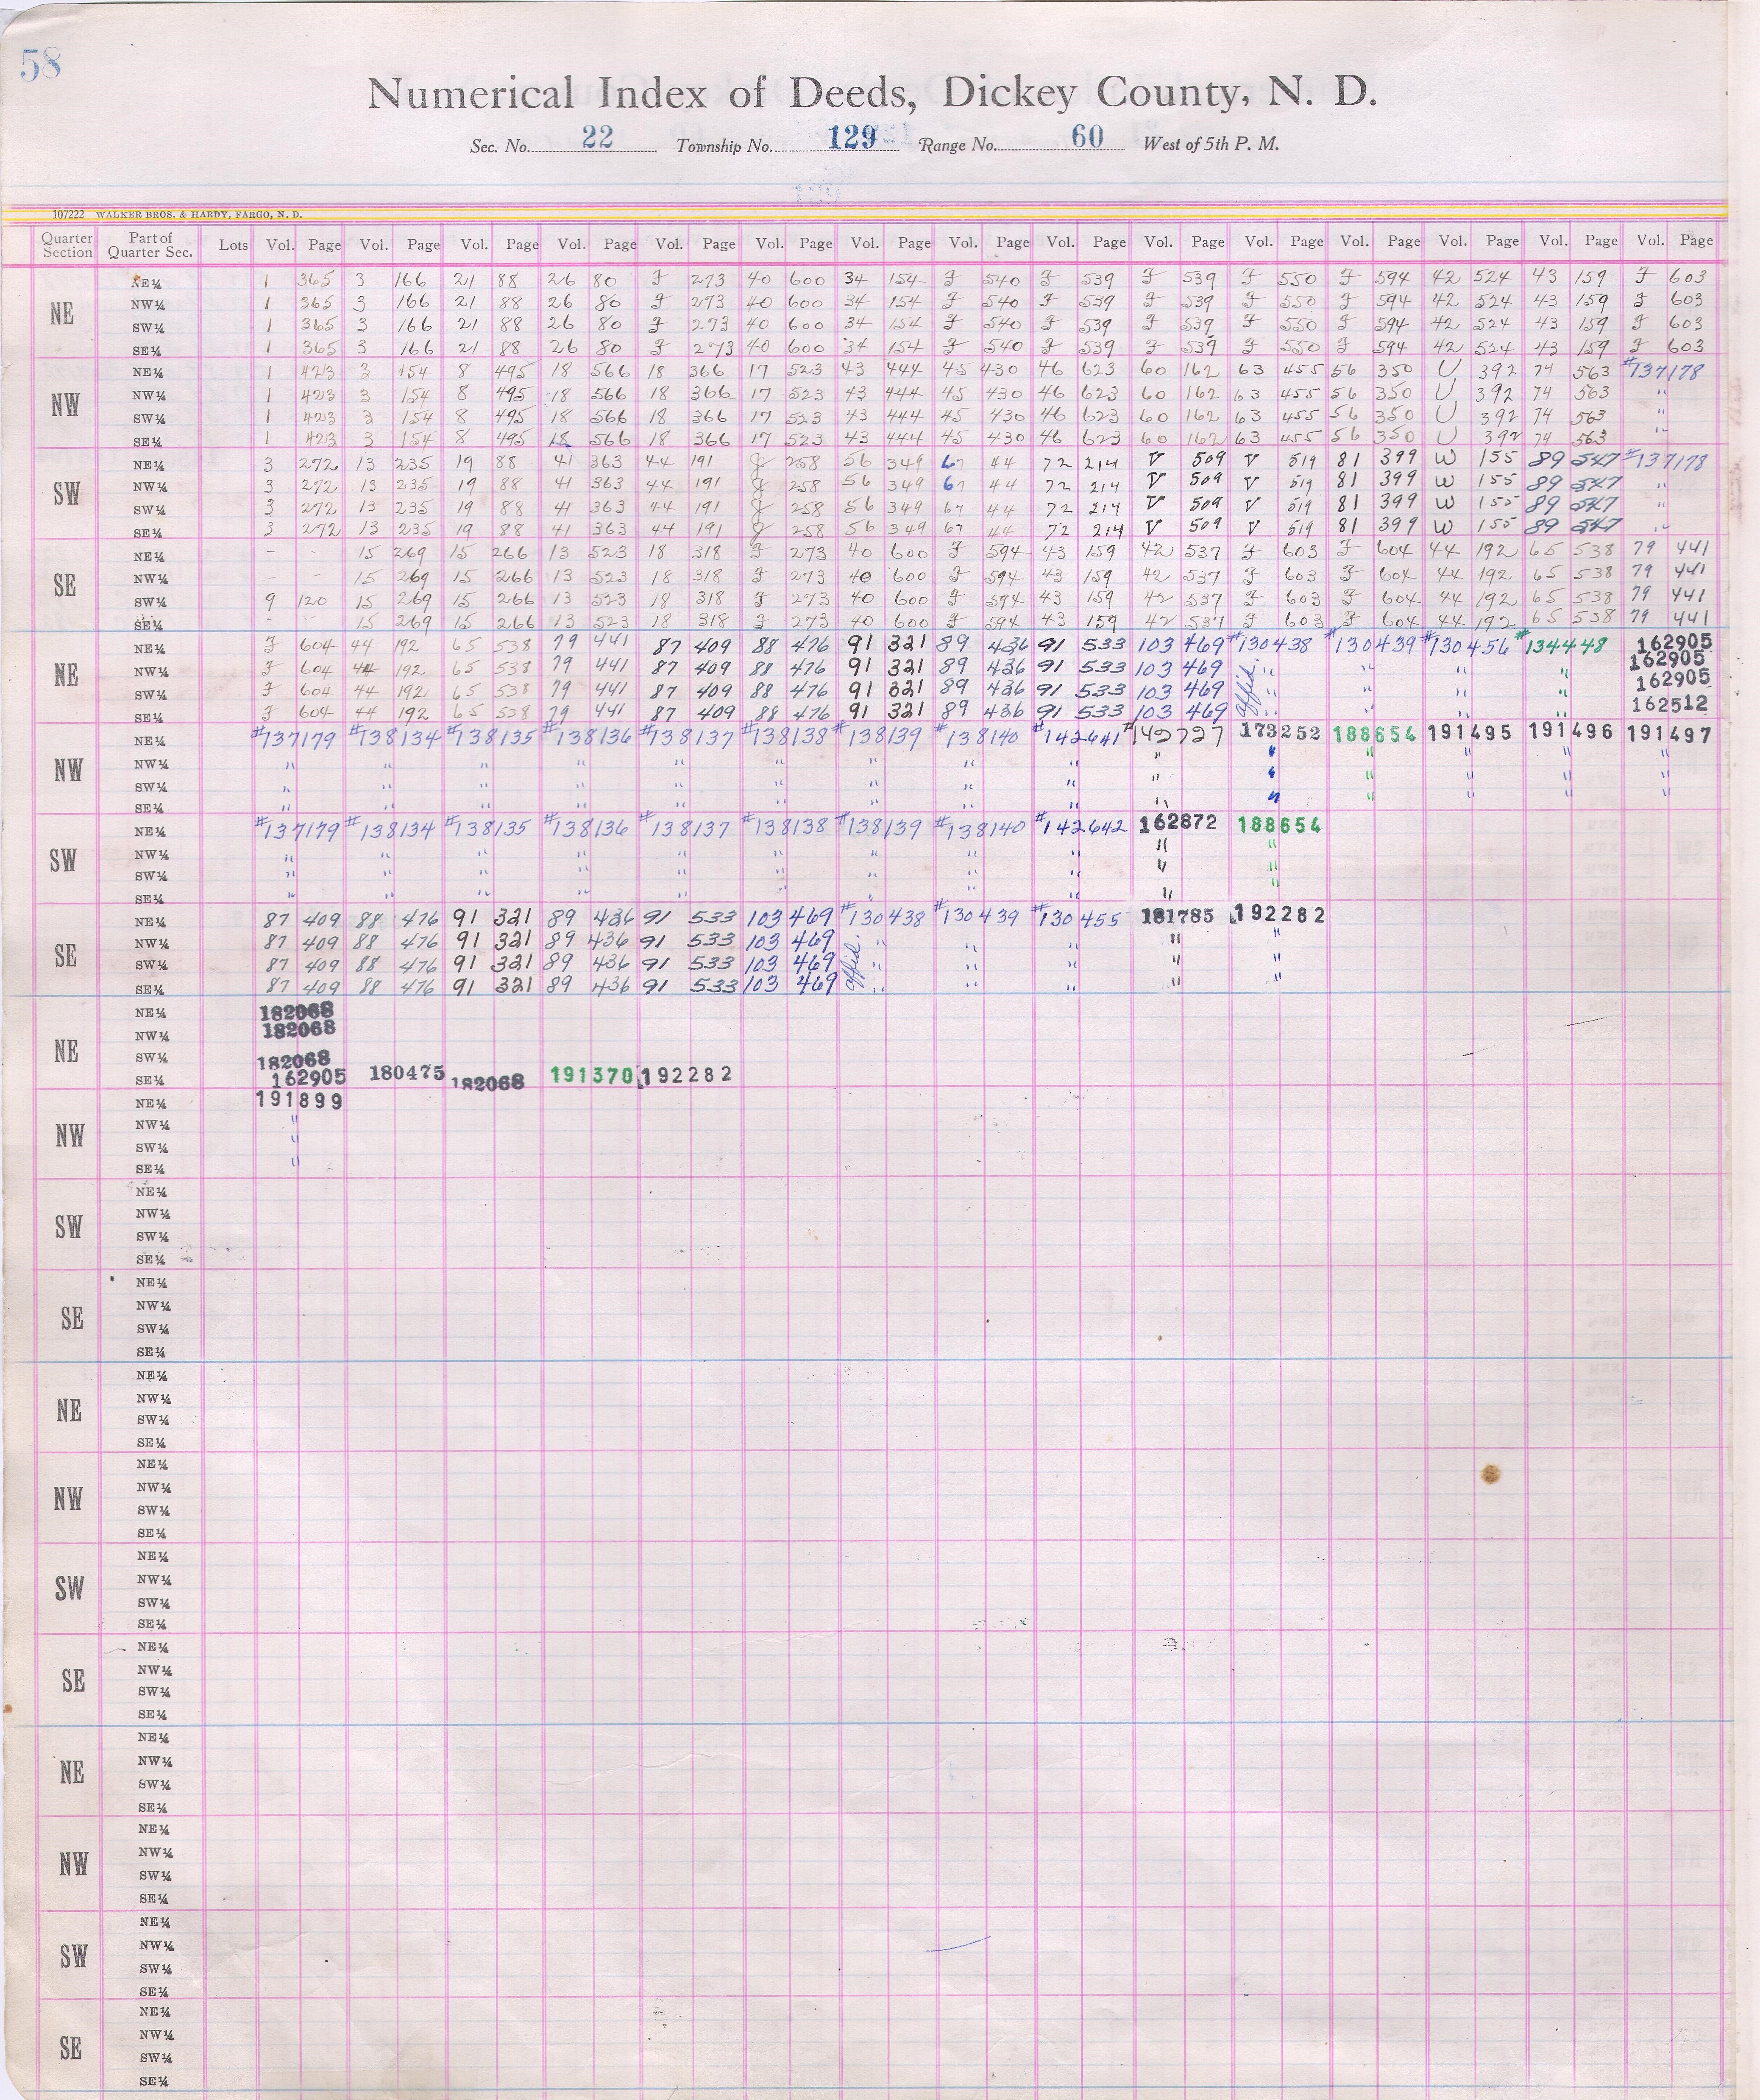 58
Numerical Index of Deeds, Dickey County, N. D.
Sec. No. 22 Township No. 129 Range No. 60 West of 5th P. M.
107222 WALKER BROS. & HARDY, FARGO, N. D.
Quarter Section Part of Quarter Sec. Lots Vol. Page Vol. Page Vol. Page Vol. Page Vol. Page Vol. Page Vol. Page Vol. Page Vol. Page Vol. Page Vol. Page Vol. Page Vol. Page Vol. Page Vol. Page
NE
NE¼ 1 365 3 166 21 88 26 80 J 273 40 600 34 154 J 540 J 539 J 539 J 550 J 594 42 524 43 159 J 603
NW¼ 1 365 3 166 21 88 26 80 J 273 40 600 34 154 J 540 J 539 J 539 J 550 J 594 42 524 43 159 J 603
SW¼ 1 365 3 166 21 88 26 80 J 273 40 600 34 154 J 540 J 539 J 539 J 550 J 594 42 524 43 159 J 603
SE¼ 1 365 3 166 21 88 26 80 J 273 40 600 34 154 J 540 J 539 J 539 J 550 J 594 42 524 43 159 J 603
NW
NE¼ 1 423 3 154 8 495 18 566 18 366 17 523 43 444 45 430 46 623 60 162 63 455 56 350 U 392 74 563 #137178
NW¼ 1 423 3 154 8 495 18 566 18 366 17 523 43 444 45 430 46 623 60 162 63 455 56 350 U 392 74 563 "
SW¼ 1 423 3 154 8 495 18 566 18 366 17 523 43 444 45 430 46 623 60 162 63 455 56 350 U 392 74 563 "
SE¼ 1 423 3 154 8 495 18 566 18 366 17 523 43 444 45 430 46 623 60 162 63 455 56 350 U 392 74 563 "
SW
NE¼ 3 272 13 235 19 88 41 363 44 191 J 258 56 349 67 44 72 214 V 509 V 519 81 399 W 155 89 547 #137178
NW¼ 3 272 13 235 19 88 41 363 44 191 J 258 56 349 67 44 72 214 V 509 V 519 81 399 W 155 89 547 "
SW¼ 3 272 13 235 19 88 41 363 44 191 J 258 56 349 67 44 72 214 V 509 V 519 81 399 W 155 89 547 "
SE¼ 3 272 13 235 19 88 41 363 44 191 J 258 56 349 67 44 72 214 V 509 V 519 81 399 W 155 89 547 "
SE
NE¼ - - 15 269 15 266 13 523 18 318 J 273 40 600 J 594 43 159 42 537 J 603 J 604 44 192 65 538 79 441
NW¼ - - 15 269 15 266 13 523 18 318 J 273 40 600 J 594 43 159 42 537 J 603 J 604 44 192 65 538 79 441
SW¼ 9 120 15 269 15 266 13 523 18 318 J 273 40 600 J 594 43 159 42 537 J 603 J 604 44 192 65 538 79 441
SE¼ - - 15 269 15 266 13 523 18 318 J 273 40 600 J 594 43 159 42 537 J 603 J 604 44 192 65 538 79 441
NE
NE¼ J 604 44 192 65 538 79 441 87 409 88 476 91 321 89 436 91 533 103 469 #130438 #130439 #130456 #134448 162905
NW¼ J 604 44 192 65 538 79 441 87 409 88 476 91 321 89 436 91 533 103 469 affid. " " " " 162905
SW¼ J 604 44 192 65 538 79 441 87 409 88 476 91 321 89 436 91 533 103 469 " " " " 162905
SE¼ J 604 44 192 65 538 79 441 87 409 88 476 91 321 89 436 91 533 103 469 " " " " 162512
NW
NE¼ #137179 #138134 #138135 #138136 #138137 #138138 #138139 #138140 #142641 #142727 173252 188654 191495 191496 191497
NW¼ " " " " " " " " " " " " " " "
SW¼ " " " " " " " " " " " " " " "
SE¼ " " " " " " " " " " " " " " "
SW
NE¼ #137179 #138134 #138135 #138136 #138137 #138138 #138139 #138140 #142642 162872 188654
NW¼ " " " " " " " " " " "
SW¼ " " " " " " " " " " "
SE¼ " " " " " " " " " " "
SE
NE¼ 87 409 88 476 91 321 89 436 91 533 103 469 #130438 #130439 #130455 181785 192282
NW¼ 87 409 88 476 91 321 89 436 91 533 103 469 affid. " " " " "
SW¼ 87 409 88 476 91 321 89 436 91 533 103 469 " " " " "
SE¼ 87 409 88 476 91 321 89 436 91 533 103 469 " " " " "
NE
NE¼ 182068
NW¼ 182068
SW¼ 182068
SE¼ 162905 180475 182068 191370 192282
NW
NE¼ 191899
NW¼ "
SW¼ "
SE¼ "
SW
NE¼
NW¼
SW¼
SE¼
SE
NE¼
NW¼
SW¼
SE¼
NE
NE¼
NW¼
SW¼
SE¼
NW
NE¼
NW¼
SW¼
SE¼
SW
NE¼
NW¼
SW¼
SE¼
SE
NE¼
NW¼
SW¼
SE¼
NE
NE¼
NW¼
SW¼
SE¼
NW
NE¼
NW¼
SW¼
SE¼
SW
NE¼
NW¼
SW¼
SE¼
SE
NE¼
NW¼
SW¼
SE¼